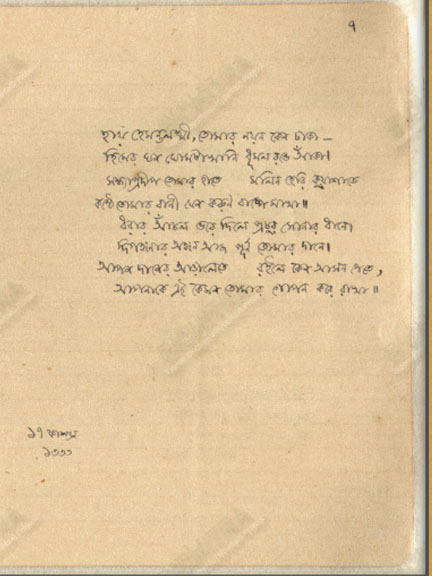 ৭
হায় হেমন্তলক্ষ্মী, তোমার নয়ন কেন ঢাকা—
হিমের ঘন ঘোমটাখানি ধূমল রঙে আঁকা।
সন্ধ্যাপ্রদীপ তোমার হাতে মলিন হেরি কুয়াশাতে
কণ্ঠে তোমার বাণী যেন করুণ বাষ্পে মাখা॥
ধরার আঁচল ভরে দিলে প্রচুর সোনার ধানে।
দিগঙ্গনার অঙ্গন আজ পূর্ণ তোমার দানে।
আপন দানের আড়ালেতে রইলে কেন আসন পেতে,
আপনাকে এই কেমন তোমার গোপন করে রাখা॥
১৭ ফাল্গুন
১৩৩৩